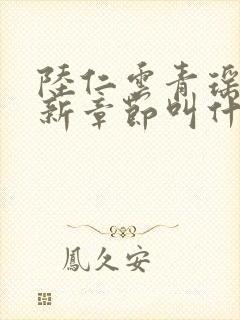 陸仁雲青瑶
新章節叫什
鳳久安